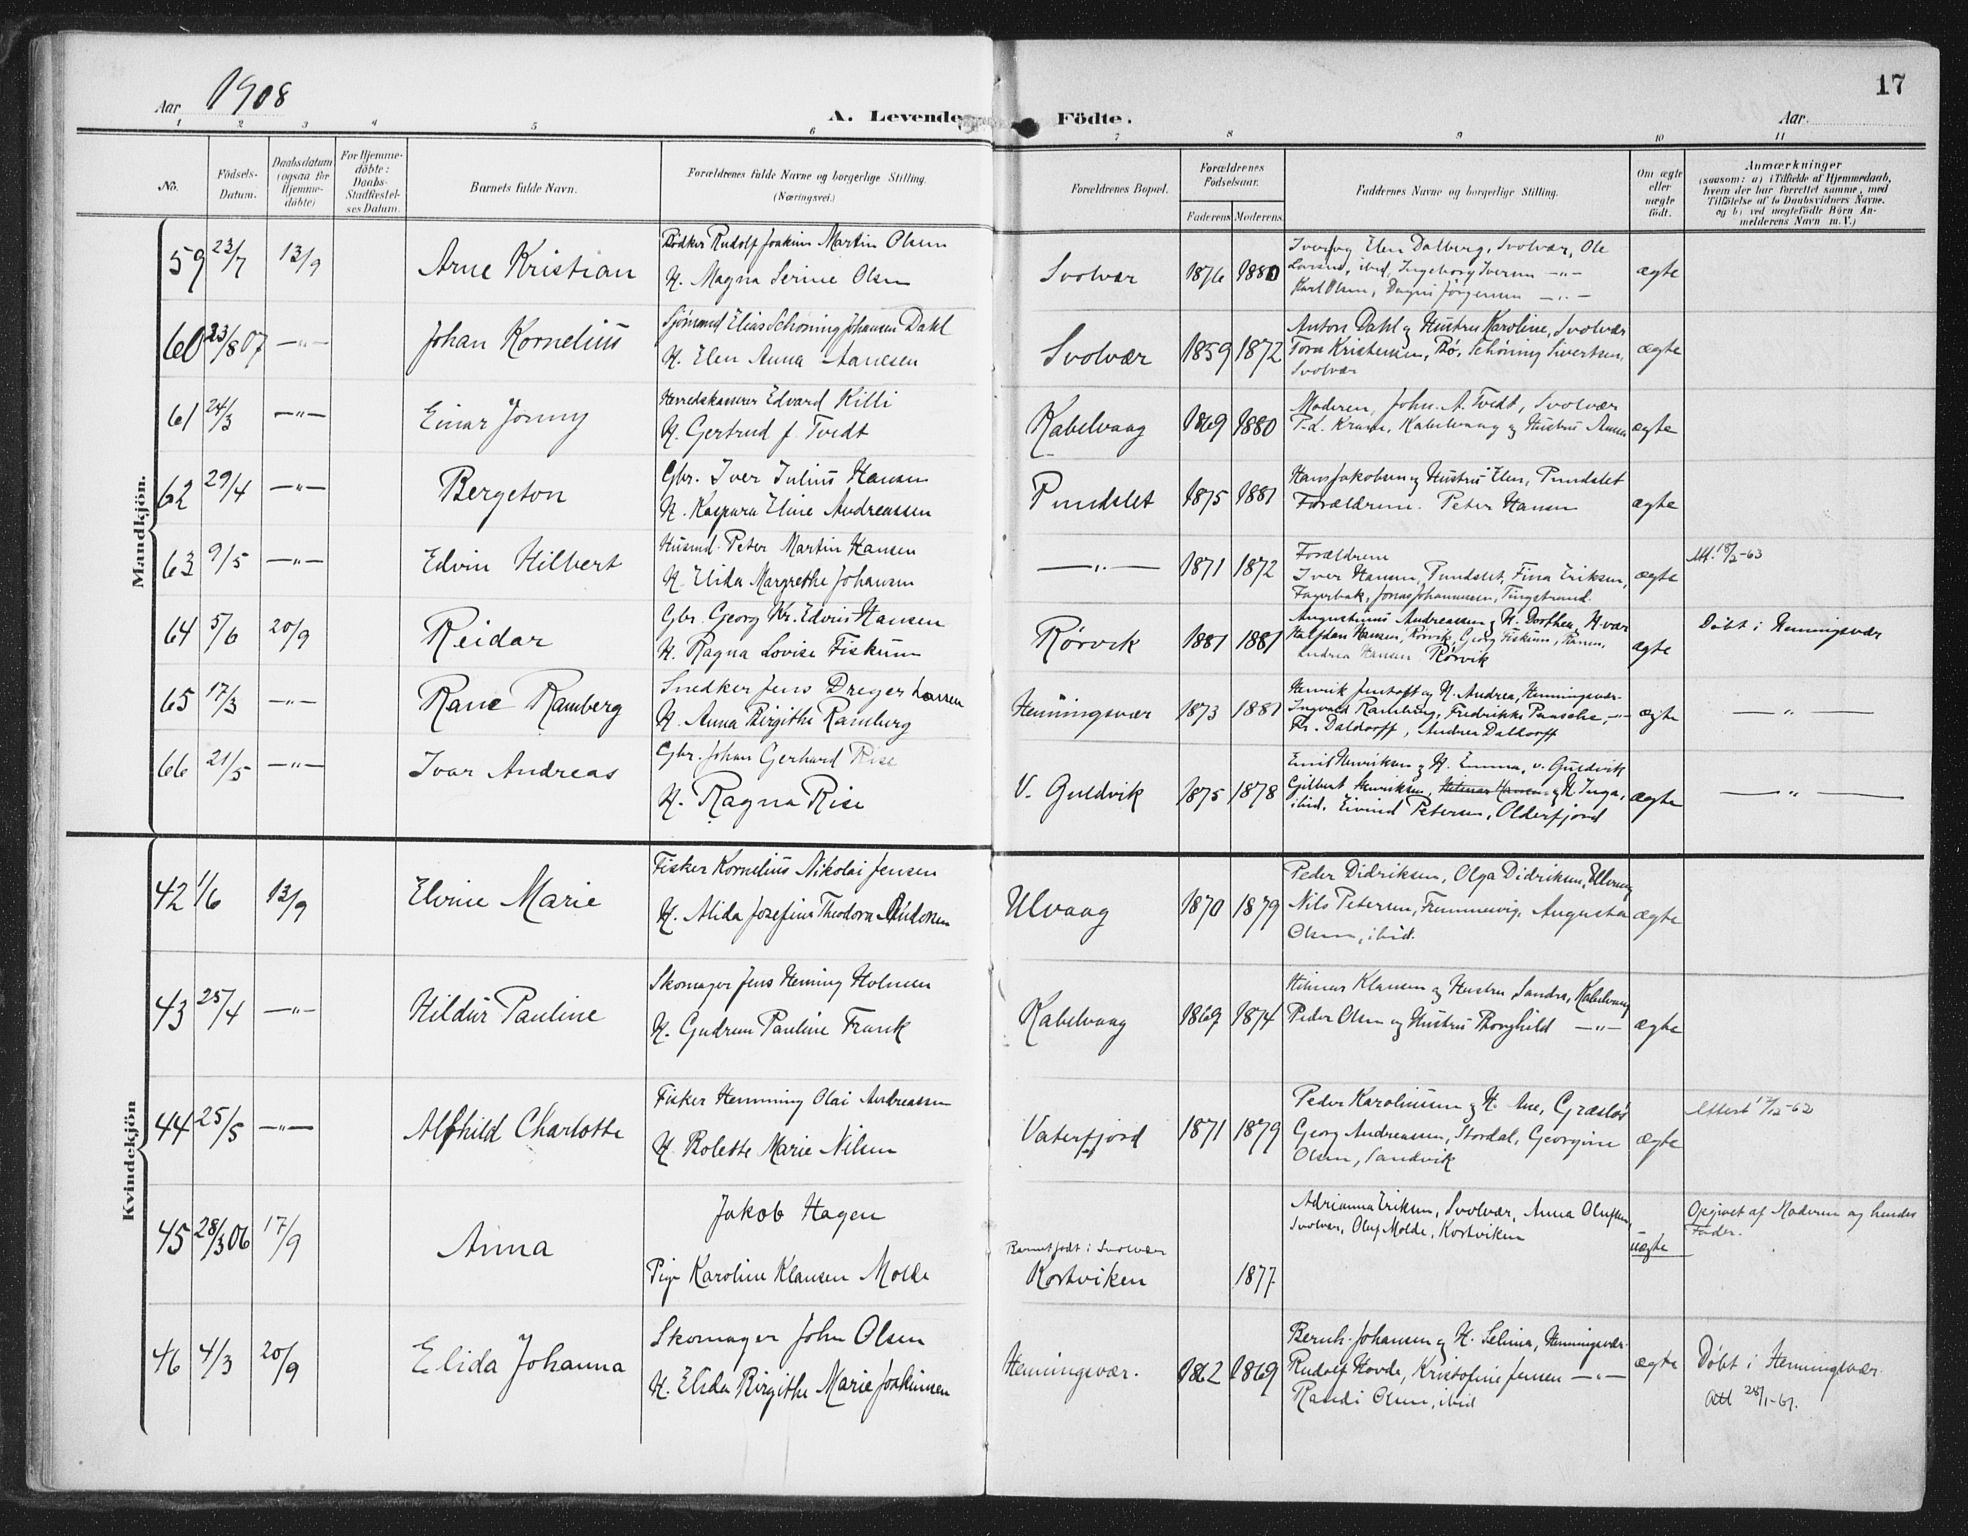 17
Aar 1908
A. Levende Födte.
Aar.
1 2 3 4 5 6 7 8 9 10 11
No.
Födsels-Datum.
Daabsdatum (ogsaa for Hjemme-döbte)
For Hjemme-döbte: Daabs-Stadfæstel-ses Datum.
Barnets fulde Navn.
Forældrenes fulde Navne og borgerlige Stilling. (Næringsvei.)
Forældrenes Bopæl.
Forældrenes Födselsaar.
Faderens Moderens
Faddernes Navne og borgerlige Stilling.
Om ægte eller uægte födt.
Anmærkninger
(saasom: a) i Tilfælde af Hjemmedaab,
hvem der har forrettet samme, med
Tilföielse af to Daabsvidners Navne.
og b) ved uægtefödte Börn An-
melderens Navn m. V.)
Mandkjön.
59 23/7 13/9 Arne Kristian
Bödker Rudolf Joakim Martin Olsen
H. Magna Serine Olsen
Svolvær 1876 1880
Iver og Elen Dalberg, Svolvær, Ole
Larsen, ibid, Ingeborg Iversen —"—
Karl Olsen, Dagni Jörgensen —"—
ægte
60 23/8 07 —"— Johan Kornelius
Sjömand Elias Schöning Johansen Dahl
H. Elen Anna Hansen
Svolvær 1859 1872
Anton Dahl og Hustru Karoline, Svolvær
Tora Kristensen, Bö, Schöning Sivertsen,
Svolvær
ægte
61 24/3 —"— Einar Jonny
Herredskasserer Edvard Killi
H. Gertrud f. Tvedt
Kabelvaag 1869 1880
Moderen, John. A. Tvedt, Svolvær
Kabelvaag og Hustru Anna
ægte
62 29/4 —"— Bergeton
Gbr. Iver Julius Hansen
H. Kaspara Eline Andreassen
Pundslet 1875 1881
Hans Jakobsen og Hustru Elen, Pundslet
Forældrene. Peter Hansen
ægte
63 9/5 —"— Edvin Hilbert
Husmd. Peter Martin Hansen
H. Elida Margrethe Johansen
—"— 1871 1872
Forældrene
Iver Hansen, Pundslet, Fina Eriksen,
Fagerbak, Jonas Johannesen, Tingstrand.
ægte
64 5/6 20/9 Reidar
Gbr. Georg Kr. Edvin Hansen
H. Ragna Lovise Fiskum
Rörvik 1881 1881
Augustinus Andreassen og H. Dorthea, H-vær
Halfdan Hansen, Rörvik, Georg Fiskum,
Andrea Hansen Rörvik
ægte
Döbt i Henningsvær
65 17/3 —"— Rane Ramberg
Snedker Jens Dreyer Larsen
H. Anna Birgithe Ramberg
Henningsvær 1873 1881
Henrik Jentoft og H. Andrea, Henningsvær
Ingvald Ramberg, Fredrikke Paasche, —"—
Fr. Daldorff, Andrea Daldorff
ægte
—"—
66 21/5 —"— Ivar Andreas
Gbr. Johan Gerhard Rise
H. Ragna Rise
V. Guldvik 1875 1878
Emil Henriksen og H. Emma, v. Guldvik
Gjelbert Henriksen, Hilmar Hansen og H. Inga,
ibid. Eivind Petersen, Olderfjord
ægte
—"—
Kvindekjön
42 1/6 13/9 Elvine Marie
Fisker Kornelius Nikolai Jensen
H. Alida Josefine Theodora Andorsen
Ulvaag 1870 1879
Peder Didriksen, Olga Didriksen, Ulvaag
Nils Petersen, Fremmervig, Augusta
Olsen, ibid.
ægte
43 25/4 —"— Hildur Pauline
Skomager Jens Heming Holmen
H. Gudrun Pauline Frank
Kabelvaag 1869 1874
Hilmar Klausen og Hustru Sandra, Kabelvaag
Peder Olsen og Hustru Thorghild —"—
ægte
44 25/5 —"— Alfhild Charlotte
Fisker Hemming Olai Andreassen
H. Bolette Marie Nilsen
Vaterfjord 1871 1879
Peder Karoliussen og H. Ane, Græslös
Georg Andreassen, Stordal, Georgine
Olsen, Sandvik
ægte
45 28/3 06 17/9 Anna
Jakob Hagen
Pige Karoline Klausen Molde
Barnet födt i Svolvær
Kortviken 1877
Adrianna Eriksen, Svolvær, Anna Olufsen,
Svolvær, Oluf Molde, Kortviken
uægte
Opgivet af Moderen og hendes
Fader.
46 4/3 20/9 Elida Johanna
Skomager John Olsen
H. Elida Birgithe Marie Joakimsen
Henningsvær. 1862 1869
Bernh. Johansen og H. Selma, Henningsvær
Rudolf Hovde, Kristofine Jensen —"—
Randi Olsen, ibid
ægte
Döbt i Henningsvær
Att 28/1-61.